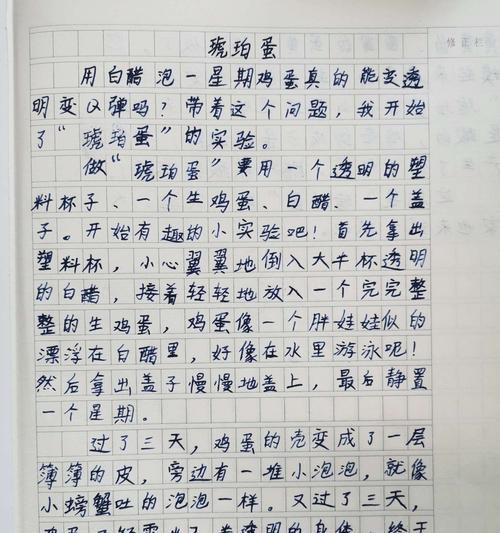 修正栏
琥珀蛋
用白醋泡一星期鸡蛋真的能变透
明变Q弹吗？带着这个问题，我开始
了“琥珀蛋”的实验。
做“琥珀蛋”要用一个透明的塑
料杯子、一个生鸡蛋、白醋、一个盖
子。开始有趣的小实验吧！首先拿出
塑料杯，小心翼翼地倒入大半杯透明
的白醋，接着轻轻地放入一个完完整
整的生鸡蛋，鸡蛋像一个胖娃娃似的
漂浮在白醋里，好像在水里游泳呢！
然后拿出盖子慢慢地盖上，最后静置
一个星期。
过了三天，鸡蛋的壳变成了一层
薄薄的皮，旁边有一堆小泡泡，就像
小螃蟹吐的泡泡一样。又过了三天，
鸡蛋
透明的身体，终于